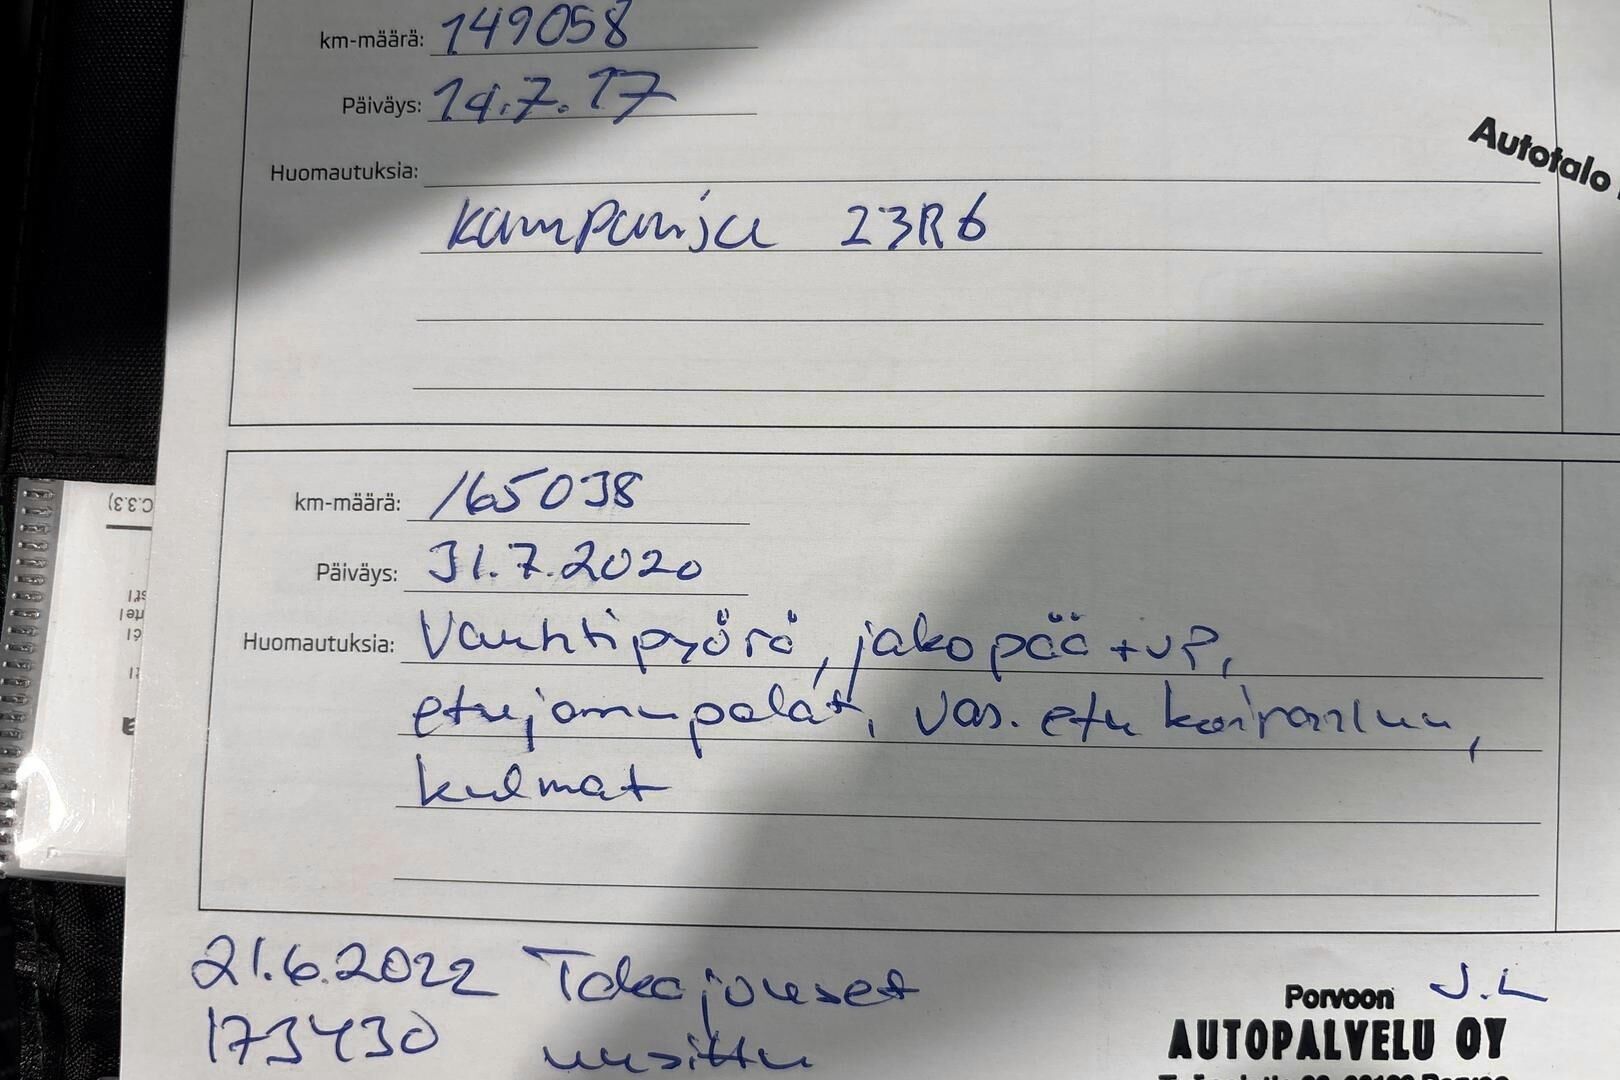 km-määrä: 149058
Päiväys: 14.7.17
Autotalo
Huomautuksia:
Kampanja 23R6
km-määrä: 165038
Päiväys: 31.7.2020
Huomautuksia: Vauhtipyörä, jakopää + VP,
etujarrupalat, vas. etu koiranluu,
kulmat
21.6.2022 Takajouset
173430 uusittu
Porvoon J.L
AUTOPALVELU OY